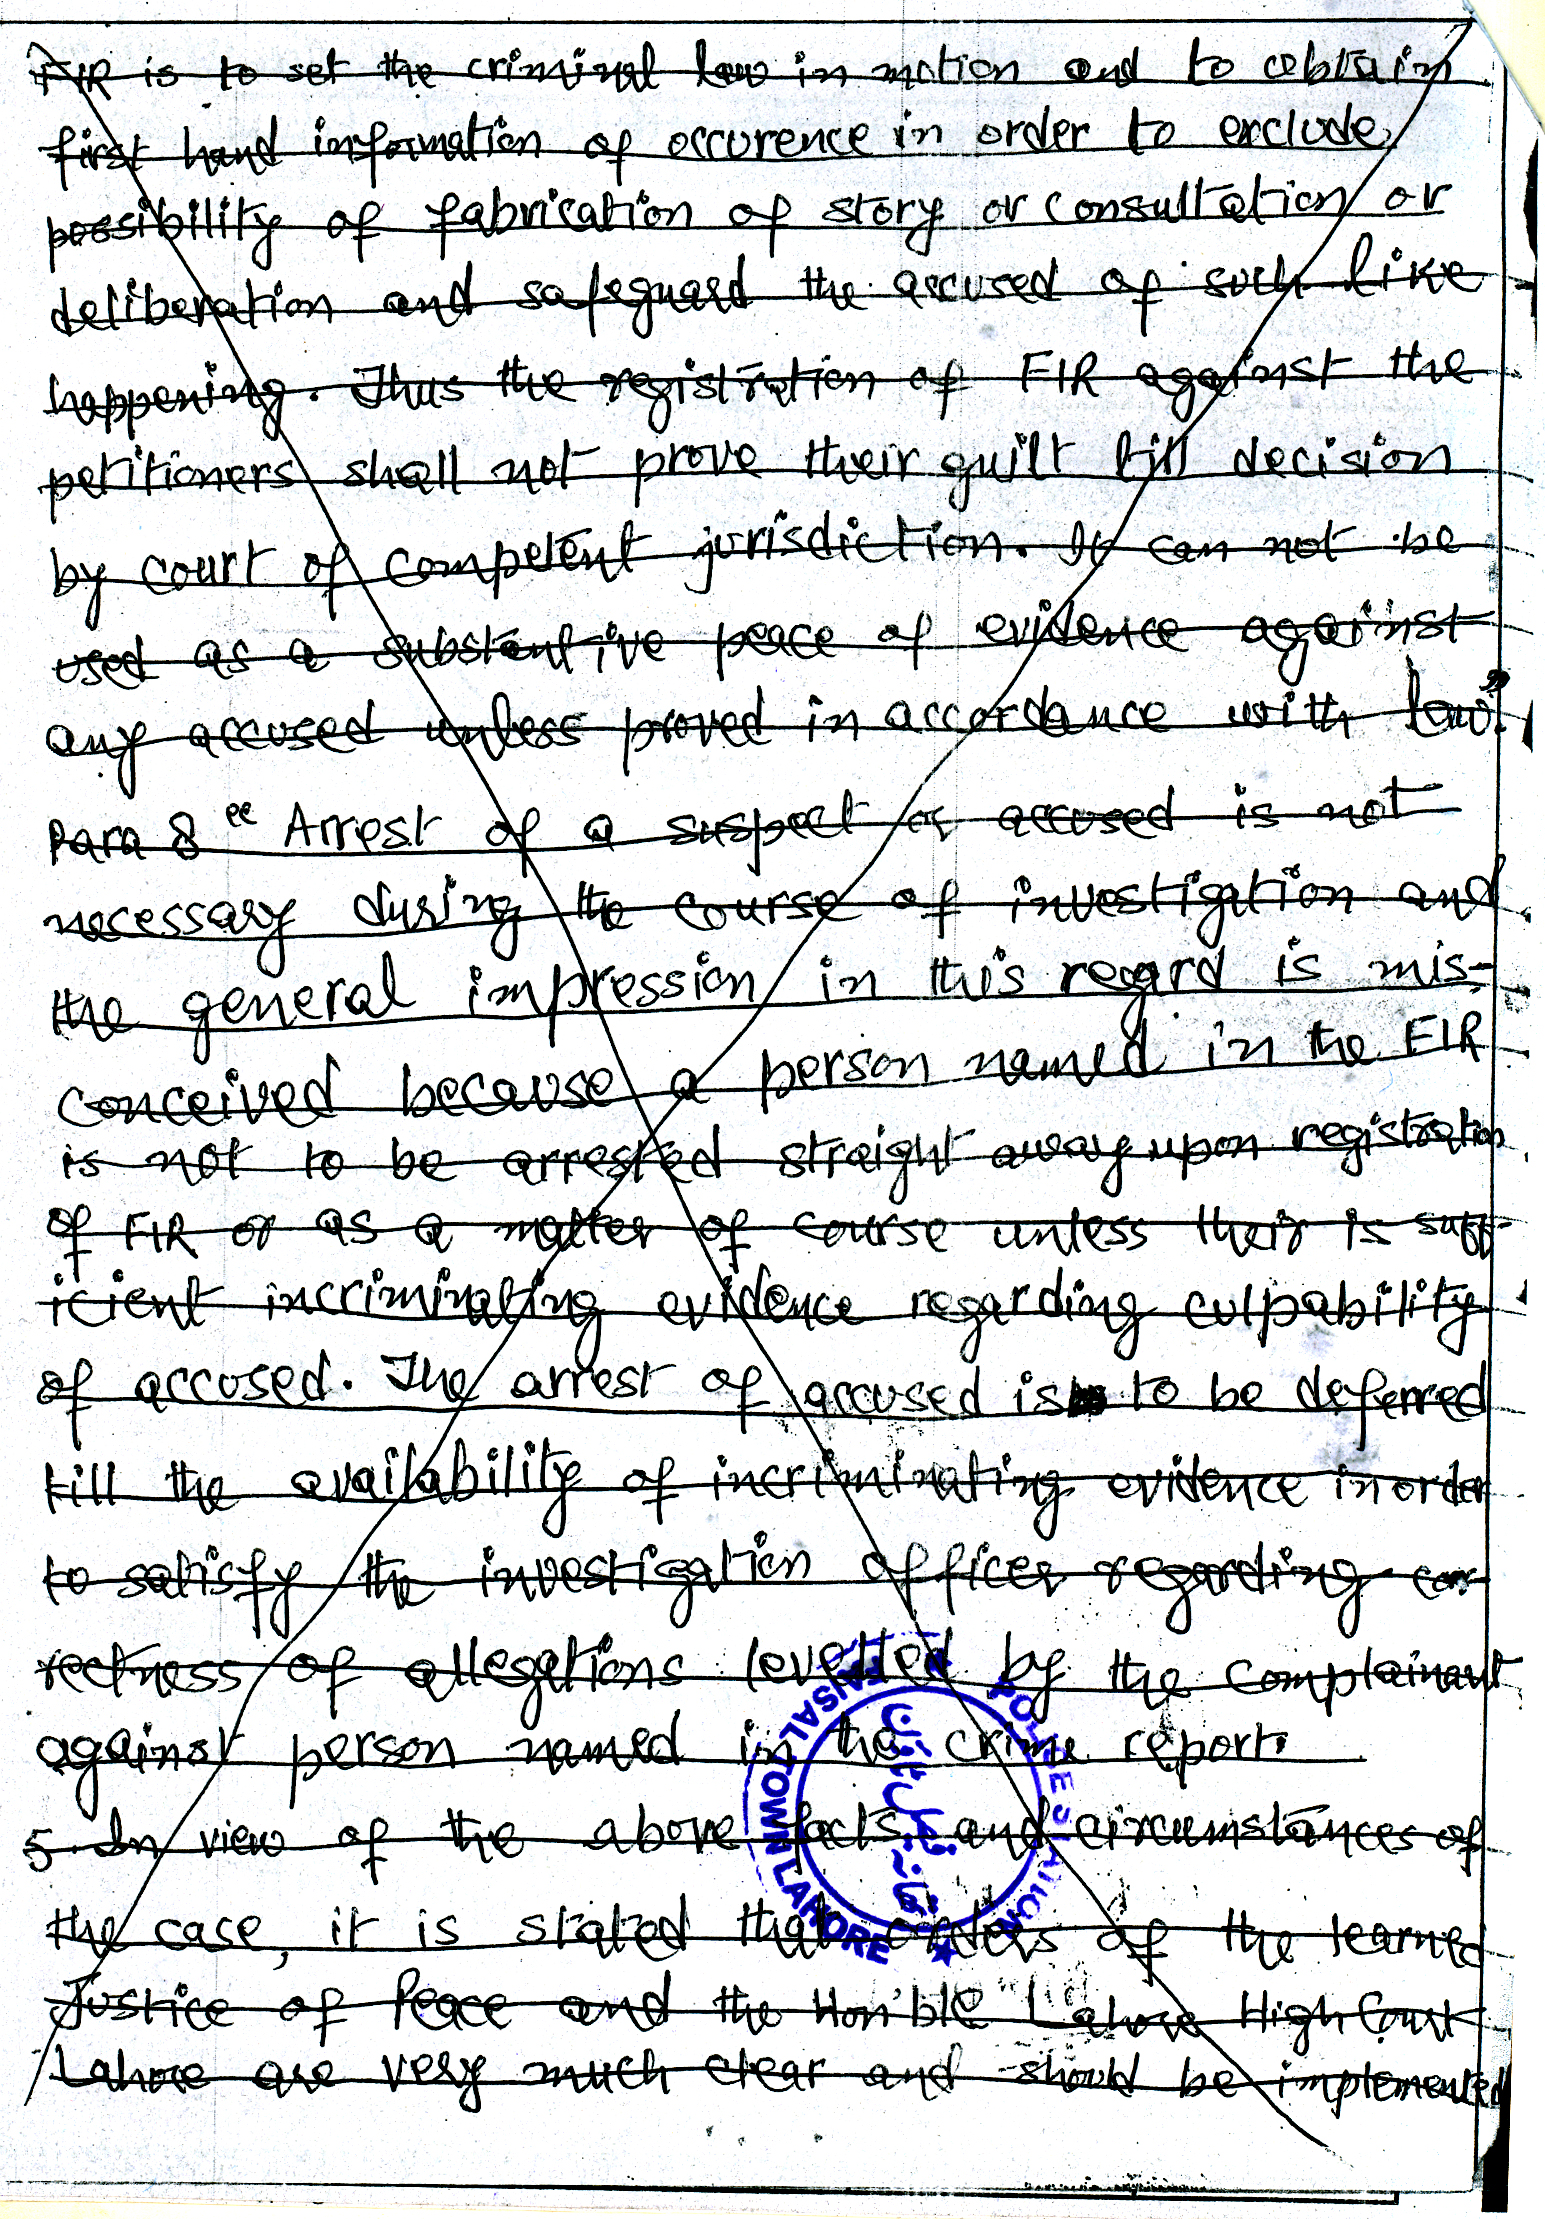 FIR is to set the criminal law in motion and to obtain
first hand information of occurence in order to exclude
possibility of fabrication of story or consultation or
deliberation and safeguard the accused of such like
happening. Thus the registration of FIR against the
petitioners shall not prove their guilt till decision
by court of competent jurisdiction. It can not be
used as a substantive peace of evidence against
any accused unless proved in accordance with law."
Para 8 "Arrest of a suspect or accused is not
necessary during the course of investigation and
the general impression in this regard is mis-
conceived because a person named in the FIR
is not to be arrested straight away upon registration
of FIR or as a matter of course unless their is suff-
icient incriminating evidence regarding culpability
of accused. The arrest of accused is to be deferred
till the availability of incriminating evidence in order
to satisfy the investigation officer regarding cor-
rectness of allegations levelled by the complainant
against person named in the crime report.
5. In view of the above facts and circumstances of
the case, it is stated that orders of the learned
Justice of Peace and the Hon'ble Lahore High Court
Lahore are very much clear and should be implemented
POLICE STATION
FAISAL TOWN LAHORE
تھانہ فیصل ٹاؤن